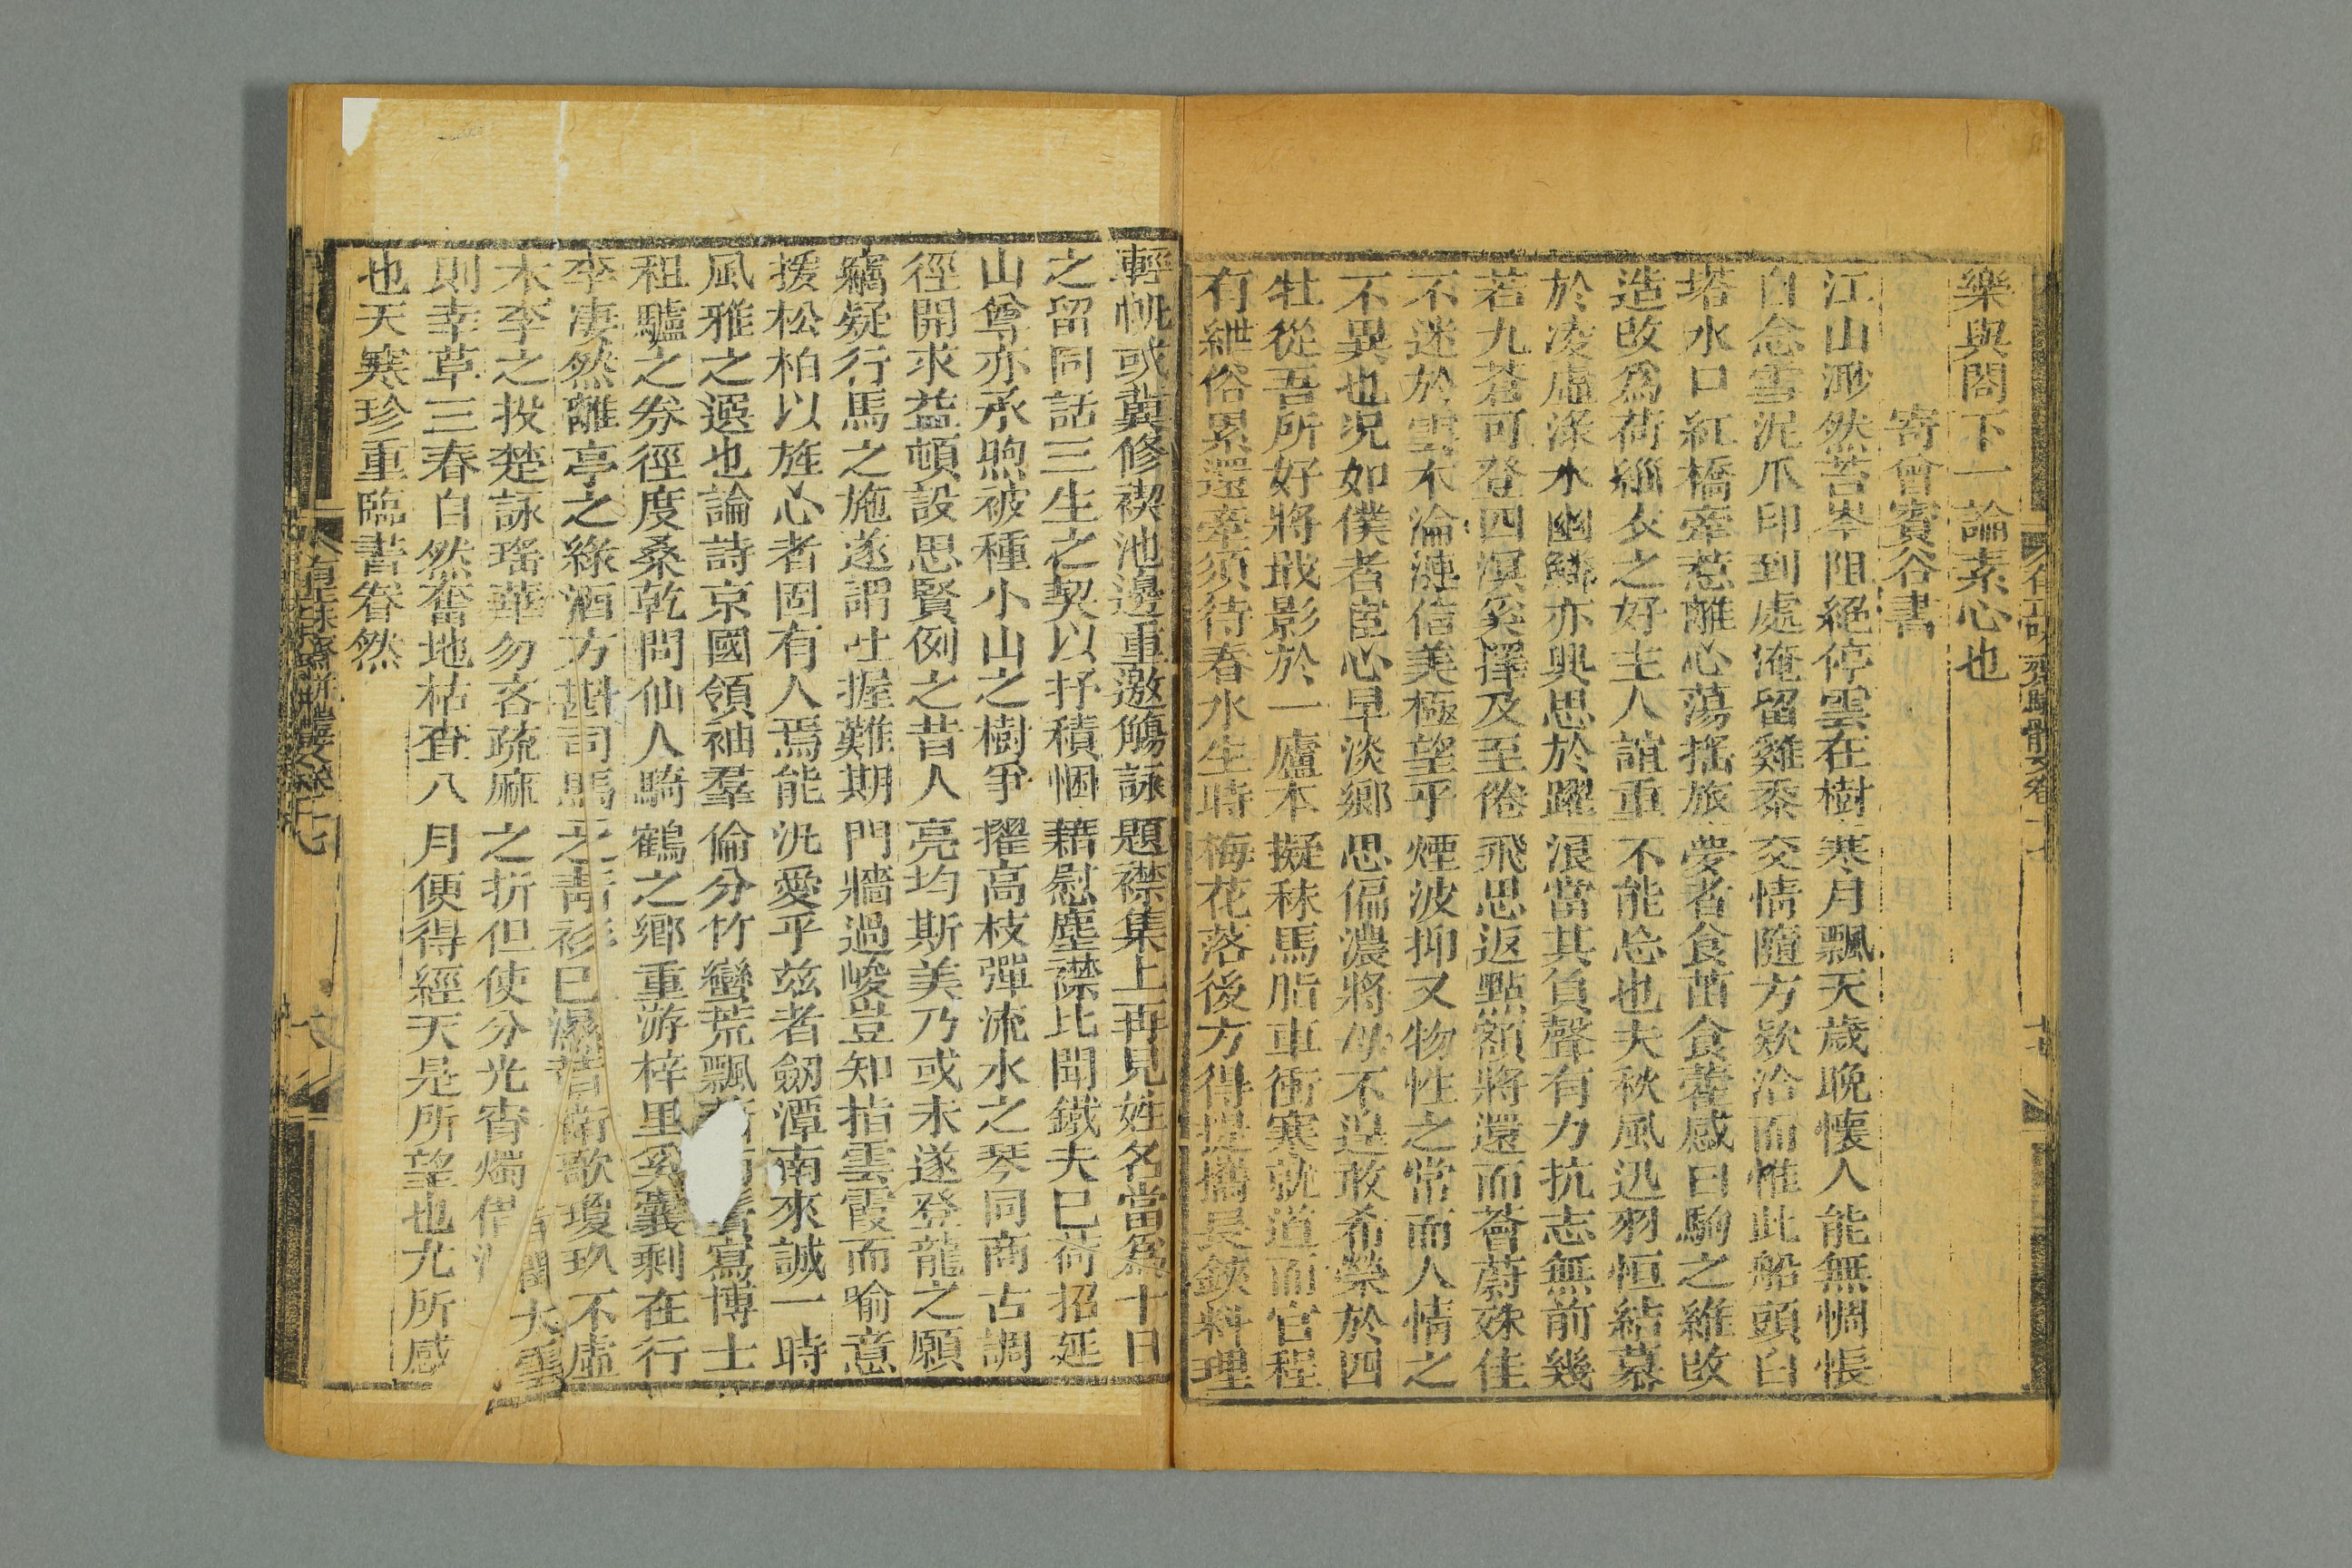 樂與閤下一論素心也
寄曾賓谷書
江山渺然苔岑阻絕停雲在樹寒月飄天歲晚懷人能無惆悵
自念雪泥爪印到處淹留雞黍交情隨方欵洽而惟此船頭白
塔水口紅橋牽惹離心蕩搖旅夢者食苗食藿感日駒之維改
造改爲荷緇衣之好主人誼重不能忘也夫秋風迅羽恒結慕
於凌虛深水幽鱗亦興思於躍浪當其負聲有力抗志無前幾
若九蒼可登四溟奚擇及至倦飛思返點額將還而薈蔚姝佳
不迷於雲木淪漣信美極望乎煙波抑又物性之常而人情之
不異也況如僕者宦心早淡鄉思偏濃將母不遑敢希榮於四
牡從吾所好將戢影於一廬本擬秣馬脂車衝寒就道而官程
有紲俗累還牽須待春水生時梅花落後方得提攜長鋏料理
輕帆或冀修禊池邊重邀觴詠題襟集上再見姓名當爲十日
之留同話三生之契以抒積悃藉慰塵襟比聞鐵夫已荷招延
山尊亦承煦被種小山之樹爭擢高枝彈流水之琴同商古調
徑開求益頓設思賢例之昔人亮均斯美乃或未遂登龍之願
竊疑行馬之施遂謂吐握難期門牆過峻豈知指雲霞而喻意
援松柏以旌心者固有人焉能汎愛乎兹者劒潭南來誠一時
風雅之選也論詩京國領袖羣倫分竹蠻荒飄寫博士
租驢之劵徑度桑乾問仙人騎鶴之鄉重游梓里奚囊剩在行
李凄然離亭之綠酒方斟司馬之青衫已濕昔衛歌瓊玖不虛
木李之投楚詠瑤華勿吝疏麻之折但使分光宵燭
則幸草三春自然奮地枯查八月便得經天是所望也尤所感
也天寒珍重臨書眷然